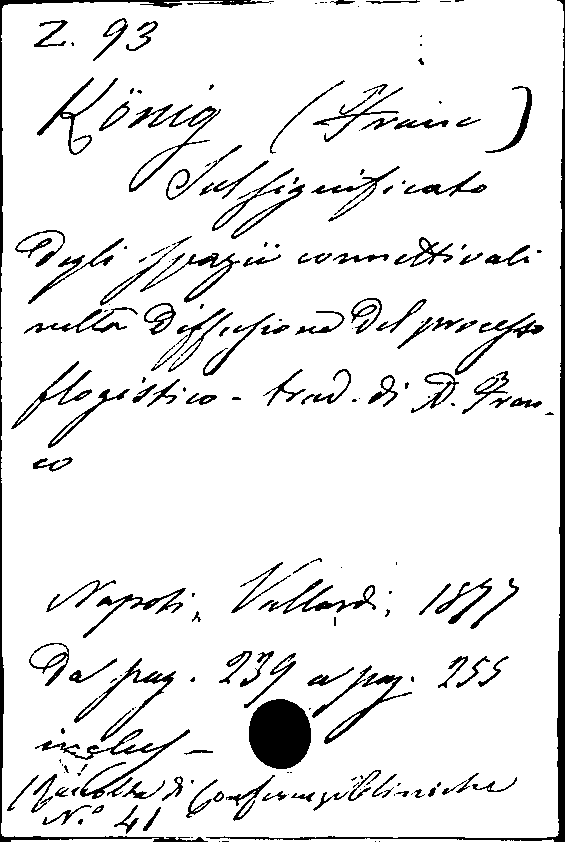 Z. 93
König (Franc)
Sul significato
degli spazii connettivali
nella diffusione del processo
flogistico - trad. di D. Fran-
co
Napoli, Vallardi, 1877
Da pag. 239 a pag. 255
inclus -
(Raccolta di Conferenze Cliniche
N.° 41